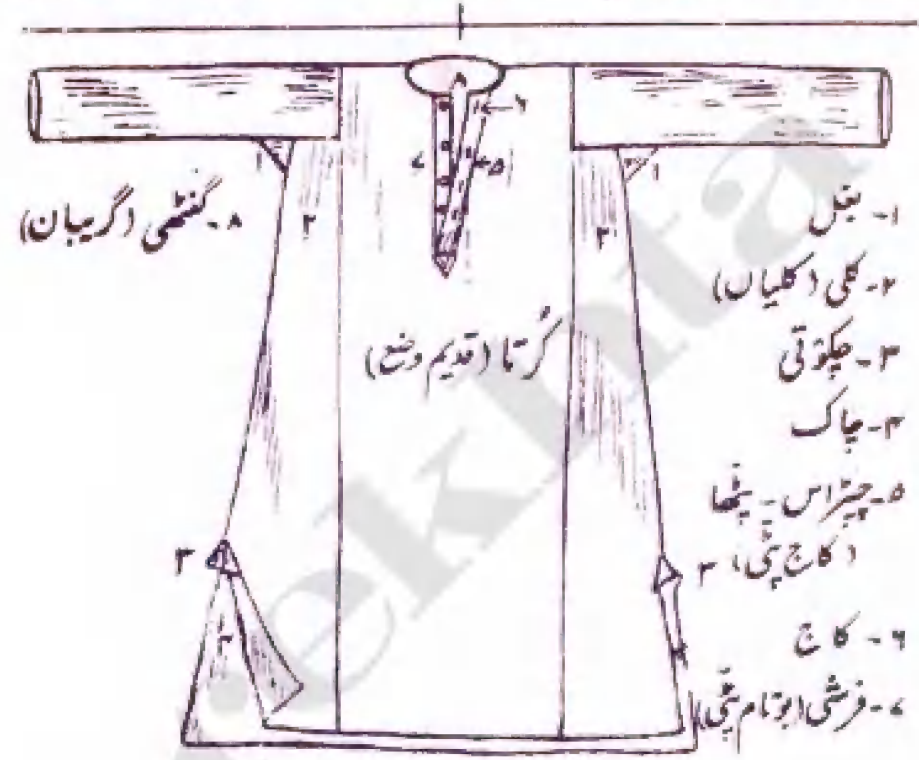 ۸- کنٹھی (گریبان)
کُرتا (قدیم وضع)
۱- بغل
۲- کلی (کلیاں)
۳- چکوتی
۴- چاک
۵- چپڑاس - پٹھا
(کاج پٹی)
۶- کاج
۷- فرشی (بوتام پٹی)
۸
۶
۷
۵
۱
۱
۲
۲
۳
۳
۴
۴
rekhta